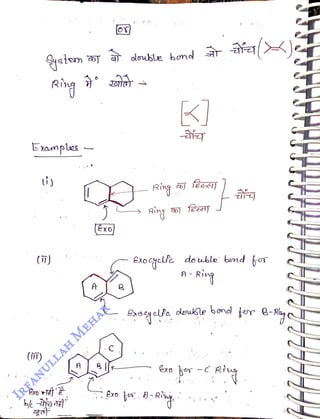 or
System का वो double bond जो चोंच (><)
Ring में खोले →
[<]
चोंच
Examples —
(i)
Ring का हिस्सा
Ring का हिस्सा
चोंच
Exo
(ii)
Exocyclic double bond for
A - Ring
A B
Exocyclic double bond for B-Ring
(iii)
C
A B
Exo for - C Ring
Exo for B-Ring
Exo नहीं है
b/c चोंच नहीं
IRFANULLAH MEHAR